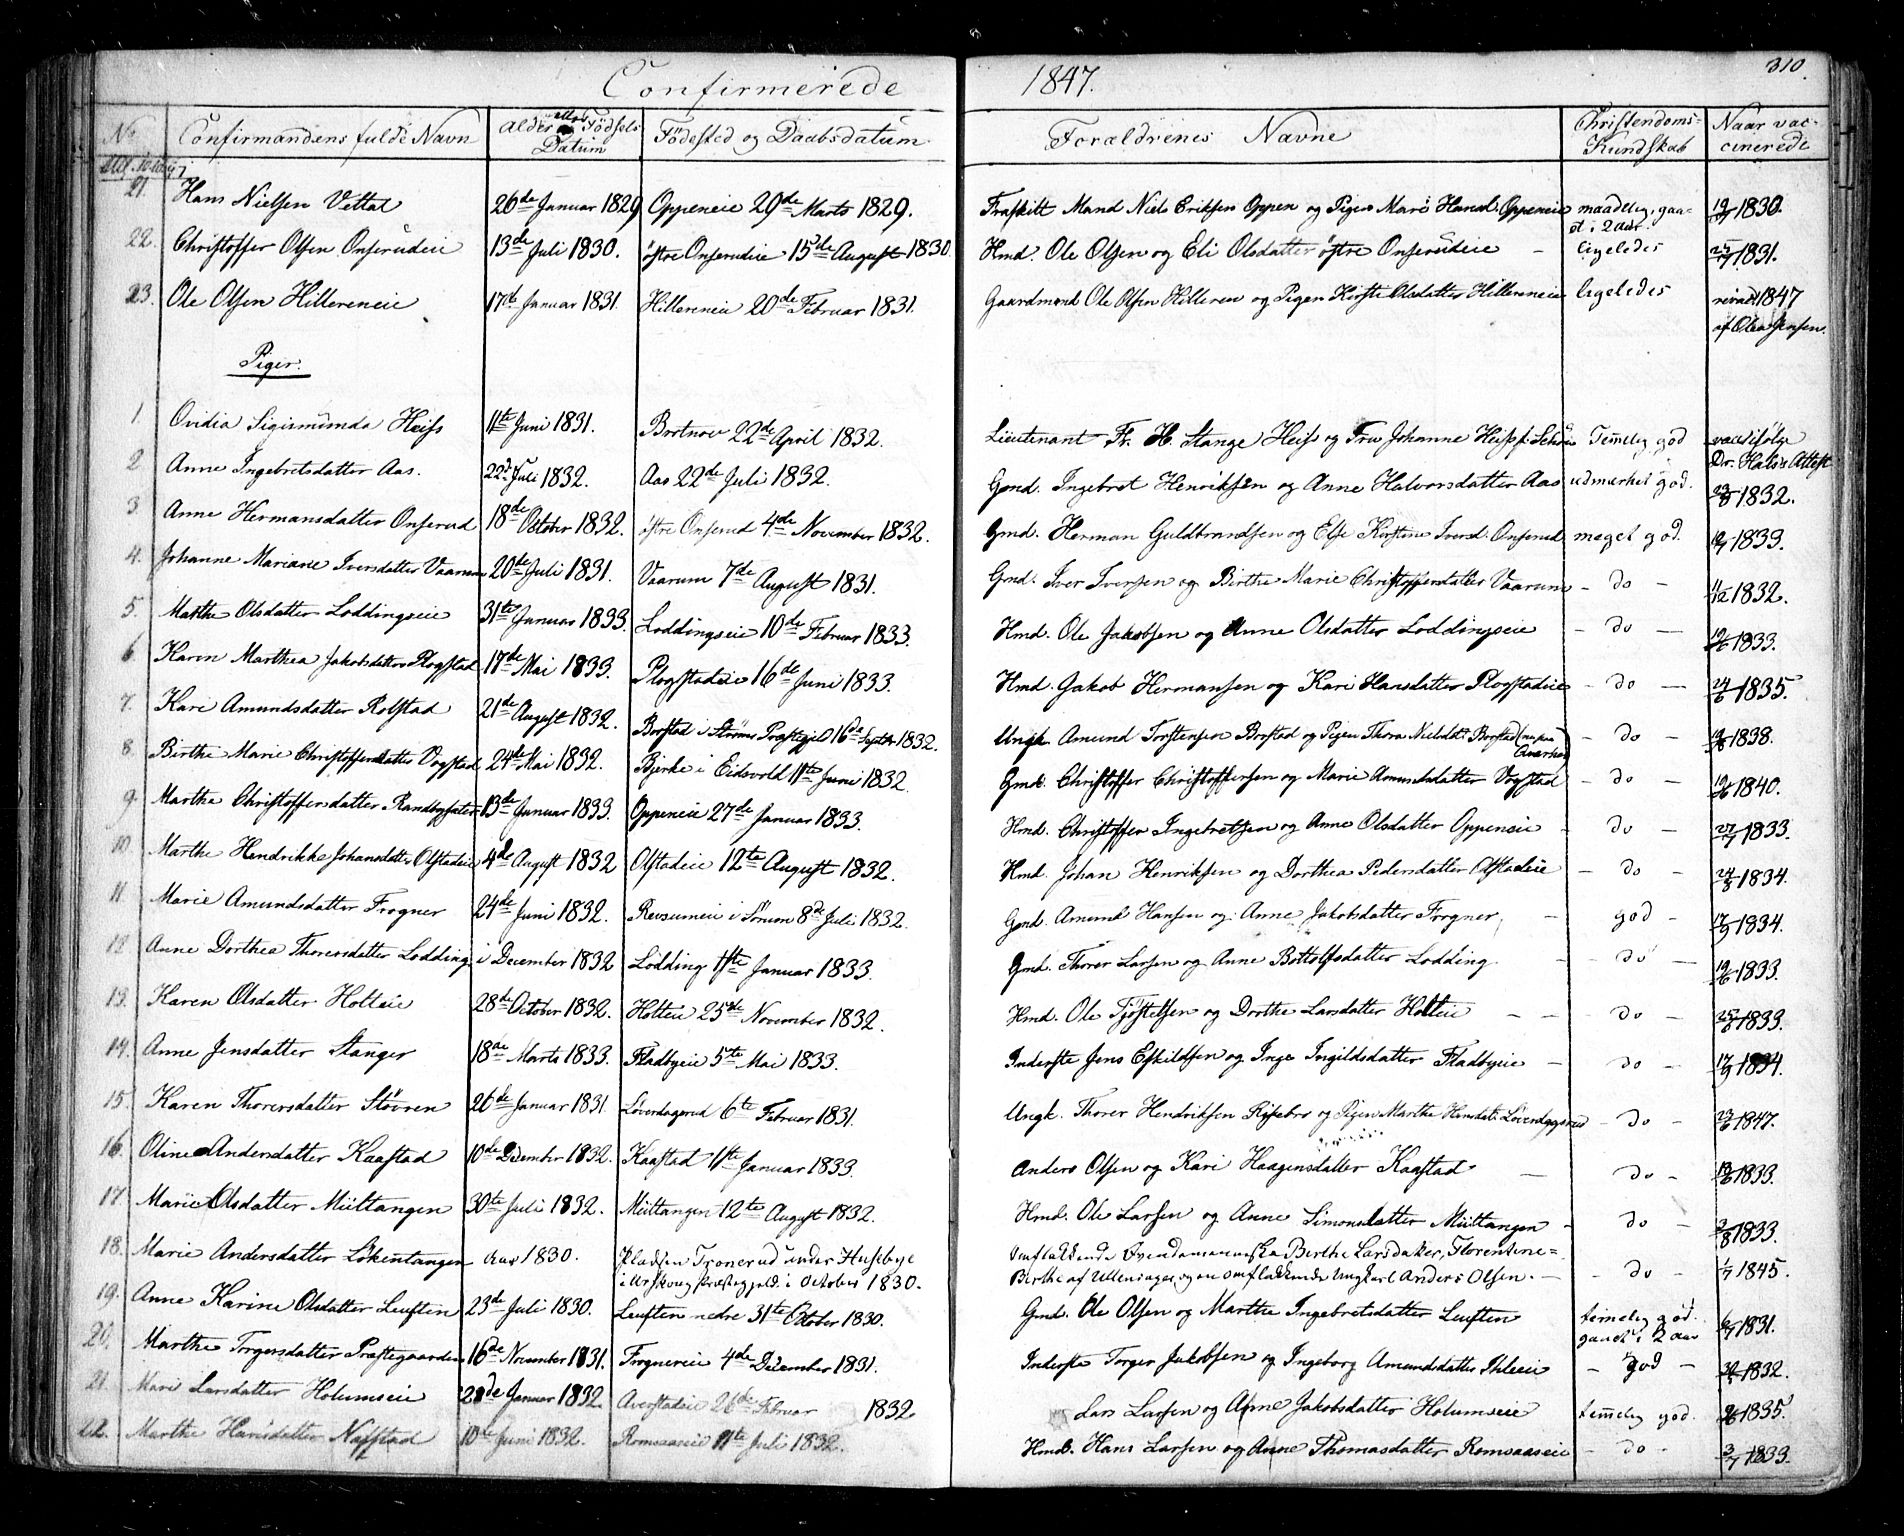 310.
Confirmerede 1847.
No Confirmandens fulde Navn Alder eller Födsels Datum Födested og Daabsdatum Forældrenes Navne Christendoms-Kundskab Naar vaccinerede
21. Hans Nielsen Vettal 26de Januar 1829 Oppeneie 29de Marts 1829. Fraskilt Mand Niels Eriksen Oppen og Pigen Mari Hansd. Oppeneie maadelig, gaaet i 2 Aar 1830.
22. Christoffer Olsen Onserudeie 13de Juli 1830. östre Onserudeie 15de August 1830 Hmd. Ole Olsen og Eli Olsdatter östre Onserudeie – ligeledes 1831.
23. Ole Olsen Hillereneie 17de Januar 1831. Hillereneie 20de Februar 1831. Gaardmand Ole Olsen Hilleren og Pigen Kirsti Olsdatter Hillereneie ligeledes 1847
af Olea Jensen.
Piger.
1. Ovidia Sigismunda Heiss 11te Juni 1831. 22de April 1832. Lieutenant Fr. H. Stange Heiss og Fru Johanne Heiss f. Temelig god ifölge Dr. Attest
2 Anne Ingebretsdatter Aas. 22de Juli 1832. Aas 22de Juli 1832. Gmd. Ingebret Henriksen og Anne Halvorsdatter Aas udmærket god. 1832.
3 Anne Hermansdatter Onserud 18de October 1832. östre Onserud 4de November 1832. Gmd. Herman Guldbrandsen og Else Kirstine Iversd. Onserud meget god. 1833.
4. Johanne Mariane Iversdatter Vaarum 20de Juli 1831. Vaarum 7de August 1831. Gmd. Iver Iversen og Birthe Marie Christoffersdatter Vaarum – do – 1832.
5. Marthe Olsdatter Loddingseie 31te Januar 1833. Loddingseie 10de Februar 1833. Hmd. Ole Jakobsen og Anne Olsdatter Loddingseie – do – 1833.
6 Karen Marthea Jakobsdatter Plogstad 17de Mai 1833. Plogstadeie 16de Juni 1833. Hmd. Jakob Hermansen og Kari Hansdatter Plogstadeie – do – 1835.
7. Kari Amundsdatter Rolstad 21de August 1832. i Præstegjeld 16de Septbr 1832. Ungk. Amund Torstensen og Pigen Thora Nielsdt. – do – 1838.
8. Birthe Marie Christoffersdatter Vogstad 24de Mai 1832. Bjerke i Eidsvold 11te Juni 1832. Gmd. Christoffer Christoffersen og Marie Amundsdatter Vogstad – do – 1840.
9. Marthe Christoffersdatter 13de Januar 1833. Oppeneie 27de Januar 1833. Hmd. Christoffer Ingebretsen og Anne Olsdatter Oppeneie – do – 27/7 1833.
10. Marthe Hendrikke Johansdatter Olstadeie 4de August 1832 Olstadeie 12te August 1832. Hmd. Johan Henriksen og Dorthea Pedersdatter Olstadeie – do – 1834.
11. Marie Amundsdatter Frogner 24de Juni 1832. i Sörum 8de Juli 1832. Gmd. Amund Hansen og Anne Jakobsdatter Frogner, – god – 1834.
12 Anne Dorthea Thorersdatter Lodding i December 1832 Lodding 1ste Januar 1833. Gmd. Thorer Larsen og Anne Bottolfsdatter Lodding – do – 1833.
13. Karen Olsdatter Holteie 28de October 1832. Holteie 25de November 1832. Hmd. Ole Tjöstelsen og Dorthe Larsdatter Holteie – – do – 1833.
14. Anne Jensdatter Stanger 18de Marts 1833. Fladbyeie 5te Mai 1833. Inderste Jens Eskildsen og Inge Ingildsdatter Fladbyeie – do – 1834.
15. Karen Thorersdatter Stövren 26de Januar 1831 Löverdagsrud 6te Februar 1831. Ungk. Thorer Hendriksen og Pigen Marthe Löverdagsrud – do – 1847.
16. Oline Andersdatter Kaastad 10de December 1832. Kaastad 1ste Januar 1833. Anders Olsen og Kari Haagensdatter Kaastad – do – 1833.
17. Marie Olsdatter Multangen 30te Juli 1832. Multangen 12te August 1832. Hmd. Ole Larsen og Anne Simonsdatter Multangen – do – 1833.
18. Marie Andersdatter Lökentangen Aar 1830. Pladsen Tronerud under Husebye
i Urskoug Præstegjeld i October 1830. omflakkende Qvindemenneske Birthe Larsdatter, Florentine-
Birthe af Ullensager, og en omflakkende Ungkarl Anders Olsen. – do – 1/7 1845.
19. Anne Karine Olsdatter Leuften 23de Juli 1830. Leuften nedre 31te October 1830. Gmd. Ole Olsen og Marthe Ingebretsdatter Leuften temelig god. gaaet i 2 Aar 1831.
20. Marthe Torgersdatter Præstegaarden 16de November 1831. Frognereie 4de December 1831. Inderste Torger Jakobsen og Ingeborg Amundsdatter – god – 1832.
21 Mari Larsdatter Holumseie 28de Januar 1832. 26de Februar 1832. Lars Larsen og Anne Jakobsdatter Holumseie temelig god. 1835.
22. Marthe Hansdatter Nafstad 10de Juni 1832. Romsaaseie 11te Juli 1832. Hmd. Hans Larsen og Anne Thomasdatter Romsaaseie – do – 3/7 1833.